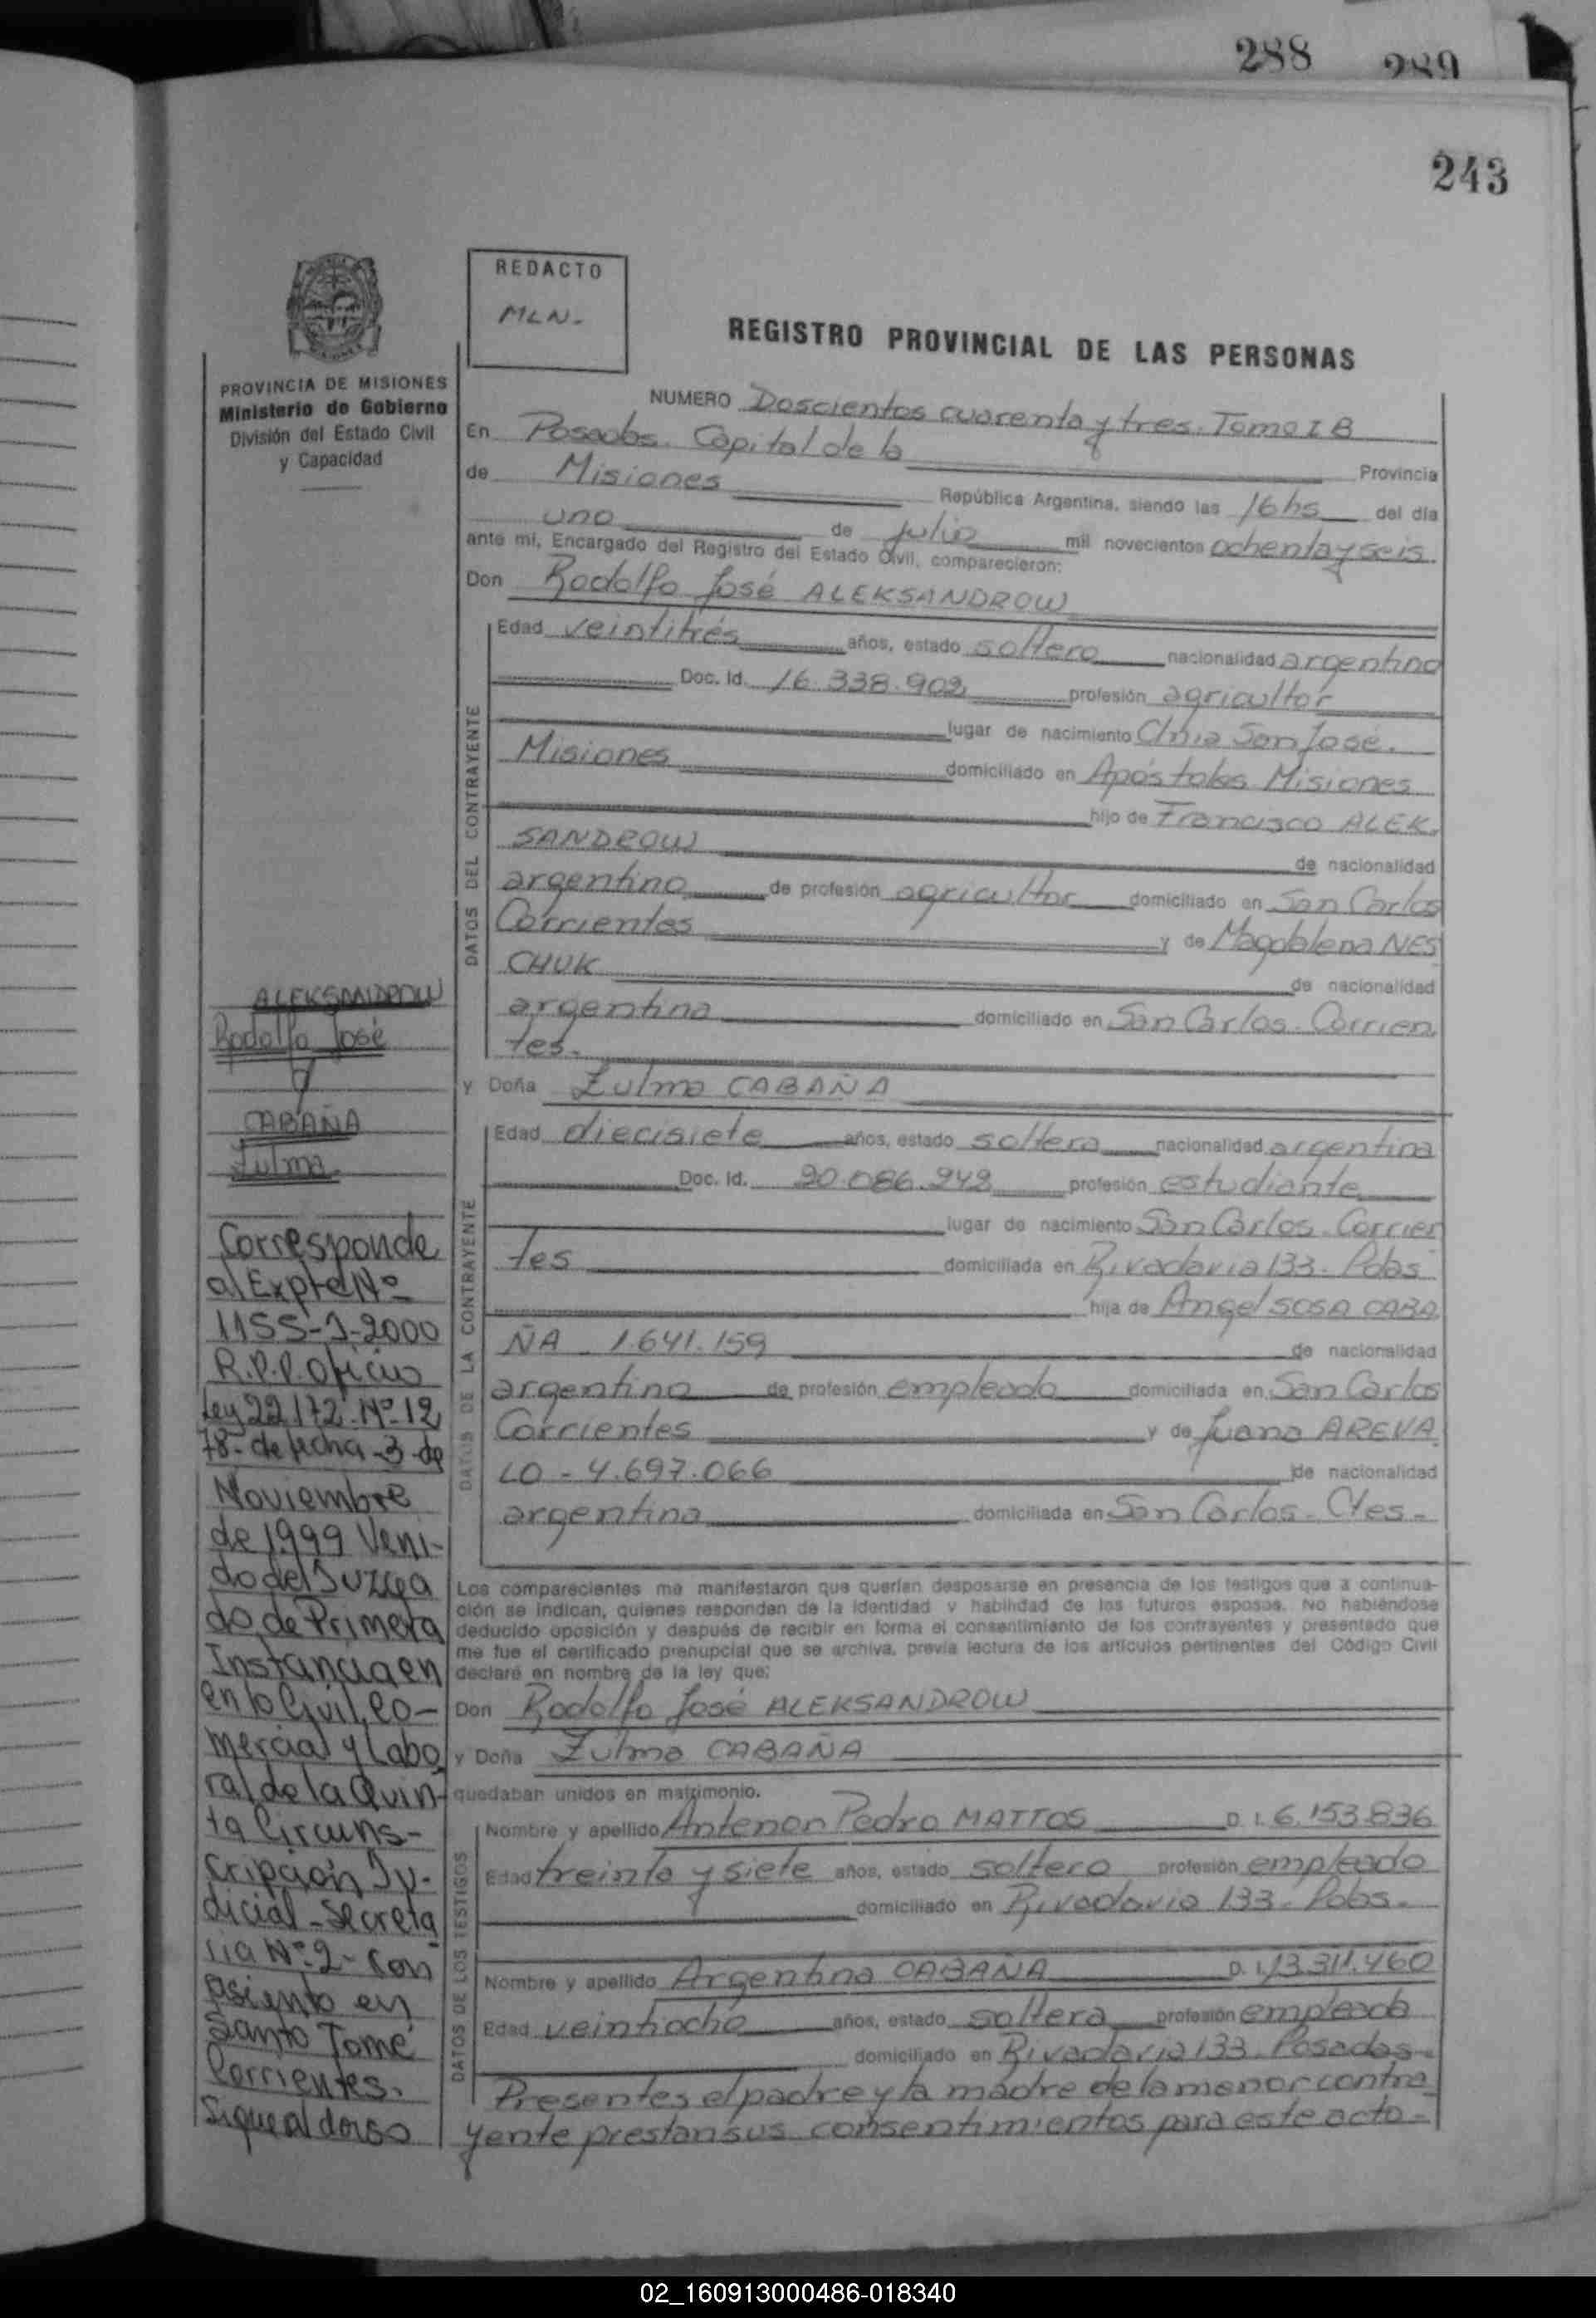 288 289
243
REDACTO
MLN-
REGISTRO PROVINCIAL DE LAS PERSONAS
PROVINCIA DE MISIONES
Ministerio de Gobierno
División del Estado Civil
y Capacidad
NUMERO Doscientos cuarenta y tres. Tomo I B
En Posadas. Capital de la Provincia
de Misiones República Argentina, siendo las 16 hs del día
uno de julio mil novecientos ochenta y seis
ante mí, Encargado del Registro del Estado Civil, comparecieron:
Don Rodolfo José ALEKSANDROW
DATOS DEL CONTRAYENTE
Edad veintitrés años, estado soltero nacionalidad argentino
Doc. Id. 16.338.902 profesión agricultor
lugar de nacimiento Clnia San José.
Misiones domiciliado en Apóstoles Misiones
hijo de Francisco ALEK
SANDROW de nacionalidad
argentino de profesión agricultor domiciliado en San Carlos
Corrientes y de Magdalena NES
CHUK de nacionalidad
argentina domiciliado en San Carlos. Corrien
tes.
y Doña Zulma CABAÑA
DATOS DE LA CONTRAYENTE
Edad diecisiete años, estado soltera nacionalidad argentina
Doc. Id. 20.086.242 profesión estudiante
lugar de nacimiento San Carlos. Corrien
tes domiciliada en Rivadavia 133. Pdas
hija de Angel SOSA CABA
ÑA - 1.641.159 de nacionalidad
argentino de profesión empleado domiciliada en San Carlos
Corrientes y de Juana AREVA
LO - 4.697.066 de nacionalidad
argentina domiciliada en San Carlos - Ctes.-
Los comparecientes me manifestaron que querían desposarse en presencia de los testigos que a continua-
ción se indican, quienes responden de la identidad y habilidad de los futuros esposos. No habiéndose
deducido oposición y después de recibir en forma el consentimiento de los contrayentes y presentado que
me fue el certificado prenupcial que se archiva, previa lectura de los artículos pertinentes del Código Civil
declaré en nombre de la ley que:
Don Rodolfo José ALEKSANDROW
y Doña Zulma CABAÑA
quedaban unidos en matrimonio.
DATOS DE LOS TESTIGOS
Nombre y apellido Antenor Pedro MATTOS D. I. 6.153.836
Edad treinta y siete años, estado soltero profesión empleado
domiciliado en Rivadavia 133 - Pdas.-
Nombre y apellido Argentina CABAÑA D. I. 13.311.460
Edad veintiocho años, estado soltera profesión empleada
domiciliado en Rivadavia 133. Posadas-
Presentes el padre y la madre de la menor contra
yente prestan sus consentimientos para este acto -
ALEKSANDROW
Rodolfo José
y
CABAÑA
Zulma
Corresponde
al Expte Nº
1155-J-2000
R.P.P. Oficio
Ley 22.172 - Nº 12
78 - de fecha -3- de
Noviembre
de 1.999 Veni-
do del Juzga
do de Primera
Instancia en
en lo Civil, Co-
mercial y Labo
ral de la Quin-
ta Circuns-
cripción Ju-
dicial - Secreta
ria Nº 2 - con
asiento en
Santo Tomé
Corrientes.
Sigue al dorso
02_160913000486-018340